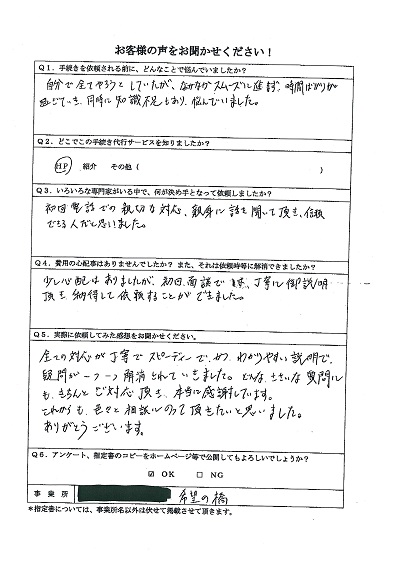 お客様の声をお聞かせください！
Q1. 手続きを依頼される前に、どんなことで悩んでいましたか？
自分で全てやろうとしていたが、なかなかスムーズに進まず、時間ばかりが
過ぎていき、同時に知識不足もあり、悩んでいました。
Q2. どこでこの手続き代行サービスを知りましたか？
HP 紹介 その他（ ）
Q3. いろいろな専門家がいる中で、何が決め手となって依頼しましたか？
初回電話での親切な対応、親身に話を聞いて頂き、信頼
できる人だと思いました。
Q4. 費用の心配事はありませんでしたか？ また、それは依頼時等に解消できましたか？
少し心配はありましたが、初回、面談で 丁寧に御説明
頂き、納得して依頼することができました。
Q5. 実際に依頼してみた感想をお聞かせください。
全ての対応が丁寧でスピーディーで、かつ、わかりやすい説明で、
疑問が一つ一つ解消されていきました。どんな、ささいな質問に
も、きちんとご対応頂き、本当に感謝しています。
これからも、色々と相談にのって頂きたいと思いました。
ありがとうございます。
Q6. アンケート、指定書のコピーをホームページ等で公開してもよろしいでしょうか？
☑ OK □ NG
事業所 希望の橋
*指定書については、事業所名以外は伏せて掲載させて頂きます。